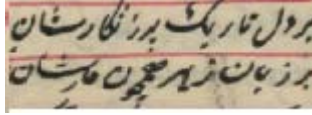 بر دل تاریک بر زنگارشان
بر زبان زهر همچون مارشان